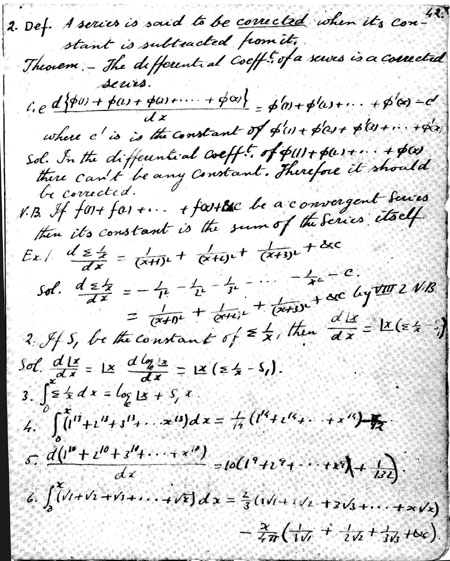 42.
2. Def. A series is said to be corrected when its con-
stant is subtracted from it,
Theorem. – The differential Coefft. of a series is a corrected
series.
i.e d{φ(1) + φ(2) + φ(3) + ..... + φ(x)} / dx = φ'(1) + φ'(2) + ... + φ'(x) – c'
where c' is is the constant of φ'(1) + φ'(2) + φ'(3) + ... + φ'(x)
Sol. In the differential coefft. of φ(1) + φ(2) + ... + φ(x)
there can't be any constant. Therefore it should
be corrected.
N.B. If f(1) + f(2) + ... + f(x) + &c be a convergent series
then its constant is the sum of the series itself
Ex. 1. d Σ 1/x / dx = 1/(x+1)² + 1/(x+2)² + 1/(x+3)² + &c
Sol. d Σ 1/x / dx = – 1/1² – 1/2² – 1/3² ... – 1/x² – c.
= 1/(x+1)² + 1/(x+2)² + 1/(x+3)² + &c by VIII 2 N.B
2. If S₁ be the constant of Σ 1/x, then d|x / dx = |x (Σ 1/x – S₁)
Sol. d|x / dx = |x d logₑ|x / dx = |x (Σ 1/x – S₁).
3. ∫₀ˣ Σ 1/x dx = logₑ|x + S₁ x
4. ∫₀ˣ (1¹³ + 2¹³ + 3¹³ + ... x¹³) dx = 1/14 (1¹⁴ + 2¹⁴ + ... + x¹⁴)
5. d(1¹⁰ + 2¹⁰ + 3¹⁰ + ... + x¹⁰) / dx = 10(1⁹ + 2⁹ + ... + x⁹) + 1/132)
6. ∫₀ˣ (√1 + √2 + √3 + ... + √x) dx = 2/3 (1√1 + 2√2 + 3√3 + ... + x√x)
– x/4π (1/1√1 + 1/2√2 + 1/3√3 + &c)